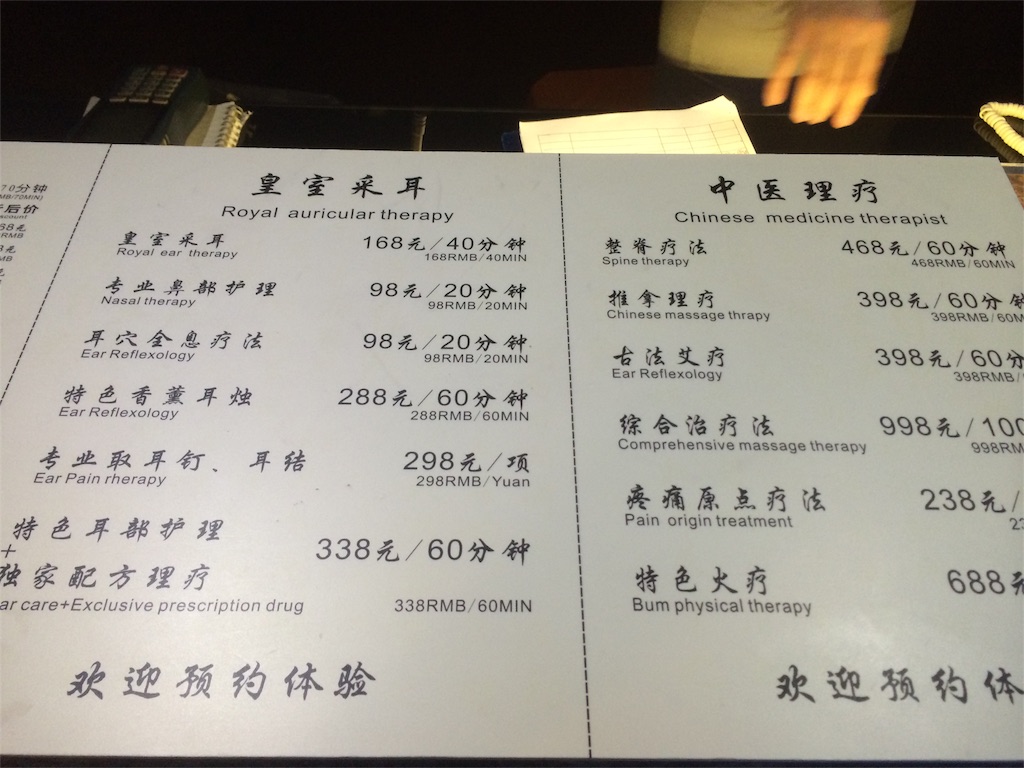 70分钟
折后价
皇室采耳
Royal auricular therapy
皇室采耳 168元/40分钟
Royal ear therapy 168RMB/40MIN
专业鼻部护理 98元/20分钟
Nasal therapy 98RMB/20MIN
耳穴全息疗法 98元/20分钟
Ear Reflexology 98RMB/20MIN
特色香薰耳烛 288元/60分钟
Ear Reflexology 288RMB/60MIN
专业取耳钉、耳结 298元/项
Ear Pain rherapy 298RMB/Yuan
特色耳部护理
+
独家配方理疗 338元/60分钟
ar care+Exclusive prescription drug 338RMB/60MIN
欢迎预约体验
中医理疗
Chinese medicine therapist
整脊疗法 468元/60分钟
Spine therapy 468RMB/60MIN
推拿理疗 398元/60分钟
Chinese massage thrapy 398RMB/60M
古法艾疗 398元/60分
Ear Reflexology 398RMB/
综合治疗法 998元/100
Comprehensive massage therapy 998RM
疼痛原点疗法 238元/
Pain origin treatment 23
特色火疗 688元
Bum physical therapy
欢迎预约体